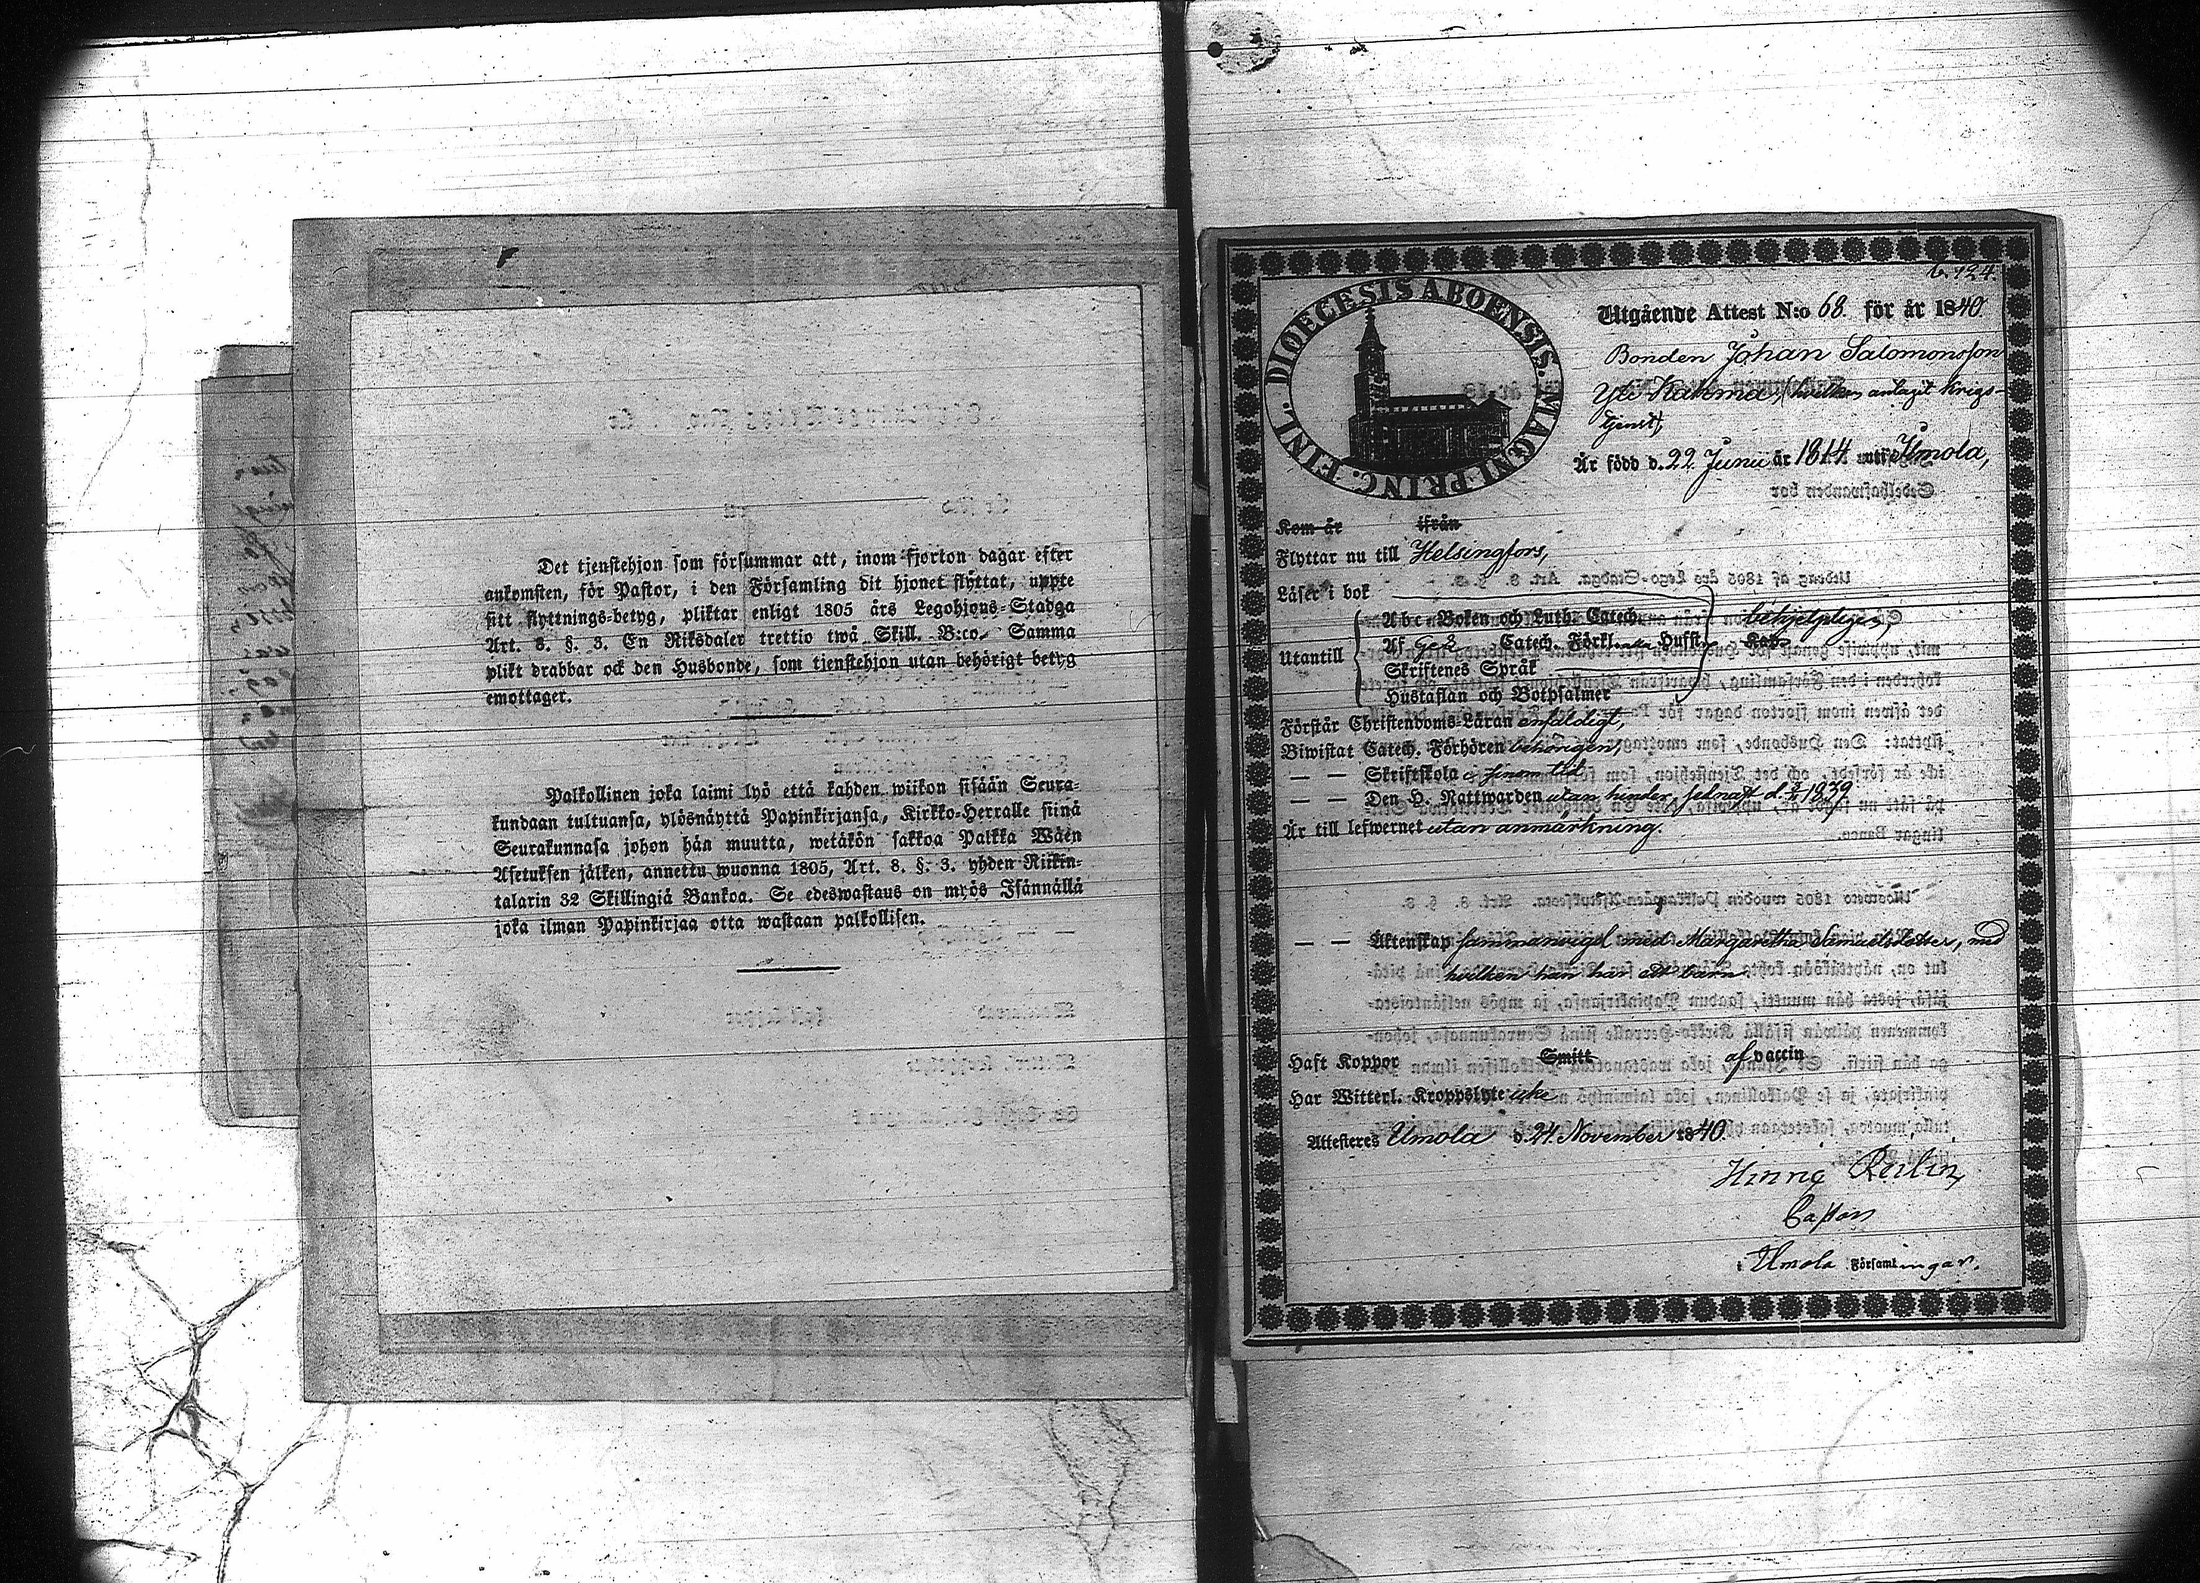 Det tjenstehjon som försummar att, inom fjorton dagar efter
ankomsten, för Pastor, i den Församling dit hjonet flyttat, uppte
sitt flyttnings-betyg, pliktar enligt 1805 års Legohjons-Stadga
Art. 8. §. 3. En Riksdaler trettio twå Skill. B:co. Samma
plikt drabbar ock den Husbonde, som tjenstehjon utan behörigt betyg
emottager.
Palkollinen joka laimi lyö että kahden wiikon sisään Seura-
kundaan tultuansa, ylösnäyttä Papinkirjansa, Kirkko-Herralle siinä
Seurakunnasa johon hän muutta, wetäkön sakkoa Palkka Wäen
Asetuksen jälken, annettu wuonna 1805, Art. 8. §. 3. yhden Riikin-
talarin 32 Skillingiä Bankoa. Se edeswastaus on myös Isännällä
joka ilman Papinkirjaa otta wastaan palkollisen.
DIOECESIS ABOENSIS. MAGNI PRINC. FINL.
Utgående Attest N:o 68 för år 1840.
Bonden Johan Salomonsson
hvilken antagit krigs-
tjenst,
Är född d. 22 Junii år 1814 uti Ilmola,
Kom år ifrån
Flyttar nu till Helsingfors,
Läser i bok
Utantill
Abc Boken och Luth. Catech. behjelpligen,
Af Catech. Förkl. Husst.
Skriftenes Språk
Hustaflan och Botpsalmer
Förstår Christendoms-Läran enfaldigt,
Biwistat Catech. Förhören behörigen,
— — Skriftskola i sinom tid
— — Den H. Nattwarden utan hinder, senast d. 1839
Är till lefwernet utan anmärkning.
— — Äktenskap sammanvigd med Margaretha Samuelsdotter, med
hvilken han har ett barn
Haft Koppor Smitt af vaccin
Har Witterl. Kroppslyte icke
Attesteres Ilmola d. 24 November 1840.
i Ilmola Församlingar.